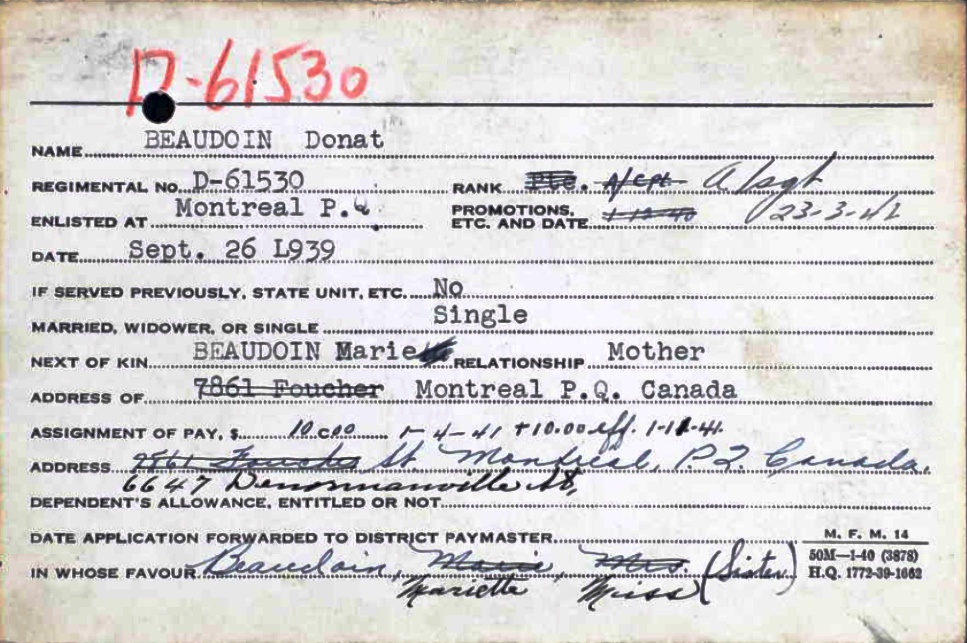 D-61530
NAME BEAUDOIN Donat
REGIMENTAL NO. D-61530 RANK Pte. A/Cpl A/sgt
ENLISTED AT Montreal P.Q PROMOTIONS, ETC. AND DATE 23-3-42
DATE Sept. 26 L939
IF SERVED PREVIOUSLY, STATE UNIT, ETC. No
MARRIED, WIDOWER, OR SINGLE Single
NEXT OF KIN BEAUDOIN Marie RELATIONSHIP Mother
ADDRESS OF 7861 Foucher Montreal P.Q. Canada
ASSIGNMENT OF PAY, $ 10.00 1-4-41 +10.00 eff. 1-11-41
ADDRESS 7861 Foucher St. Montreal, P.Q. Canada.
6647 Denormanville St,
DEPENDENT'S ALLOWANCE, ENTITLED OR NOT
DATE APPLICATION FORWARDED TO DISTRICT PAYMASTER
M. F. M. 14
50M—1-40 (3878)
H.Q. 1772-39-1662
IN WHOSE FAVOUR Beaudoin, Marie, Mrs. (Sister)
Mariette Miss